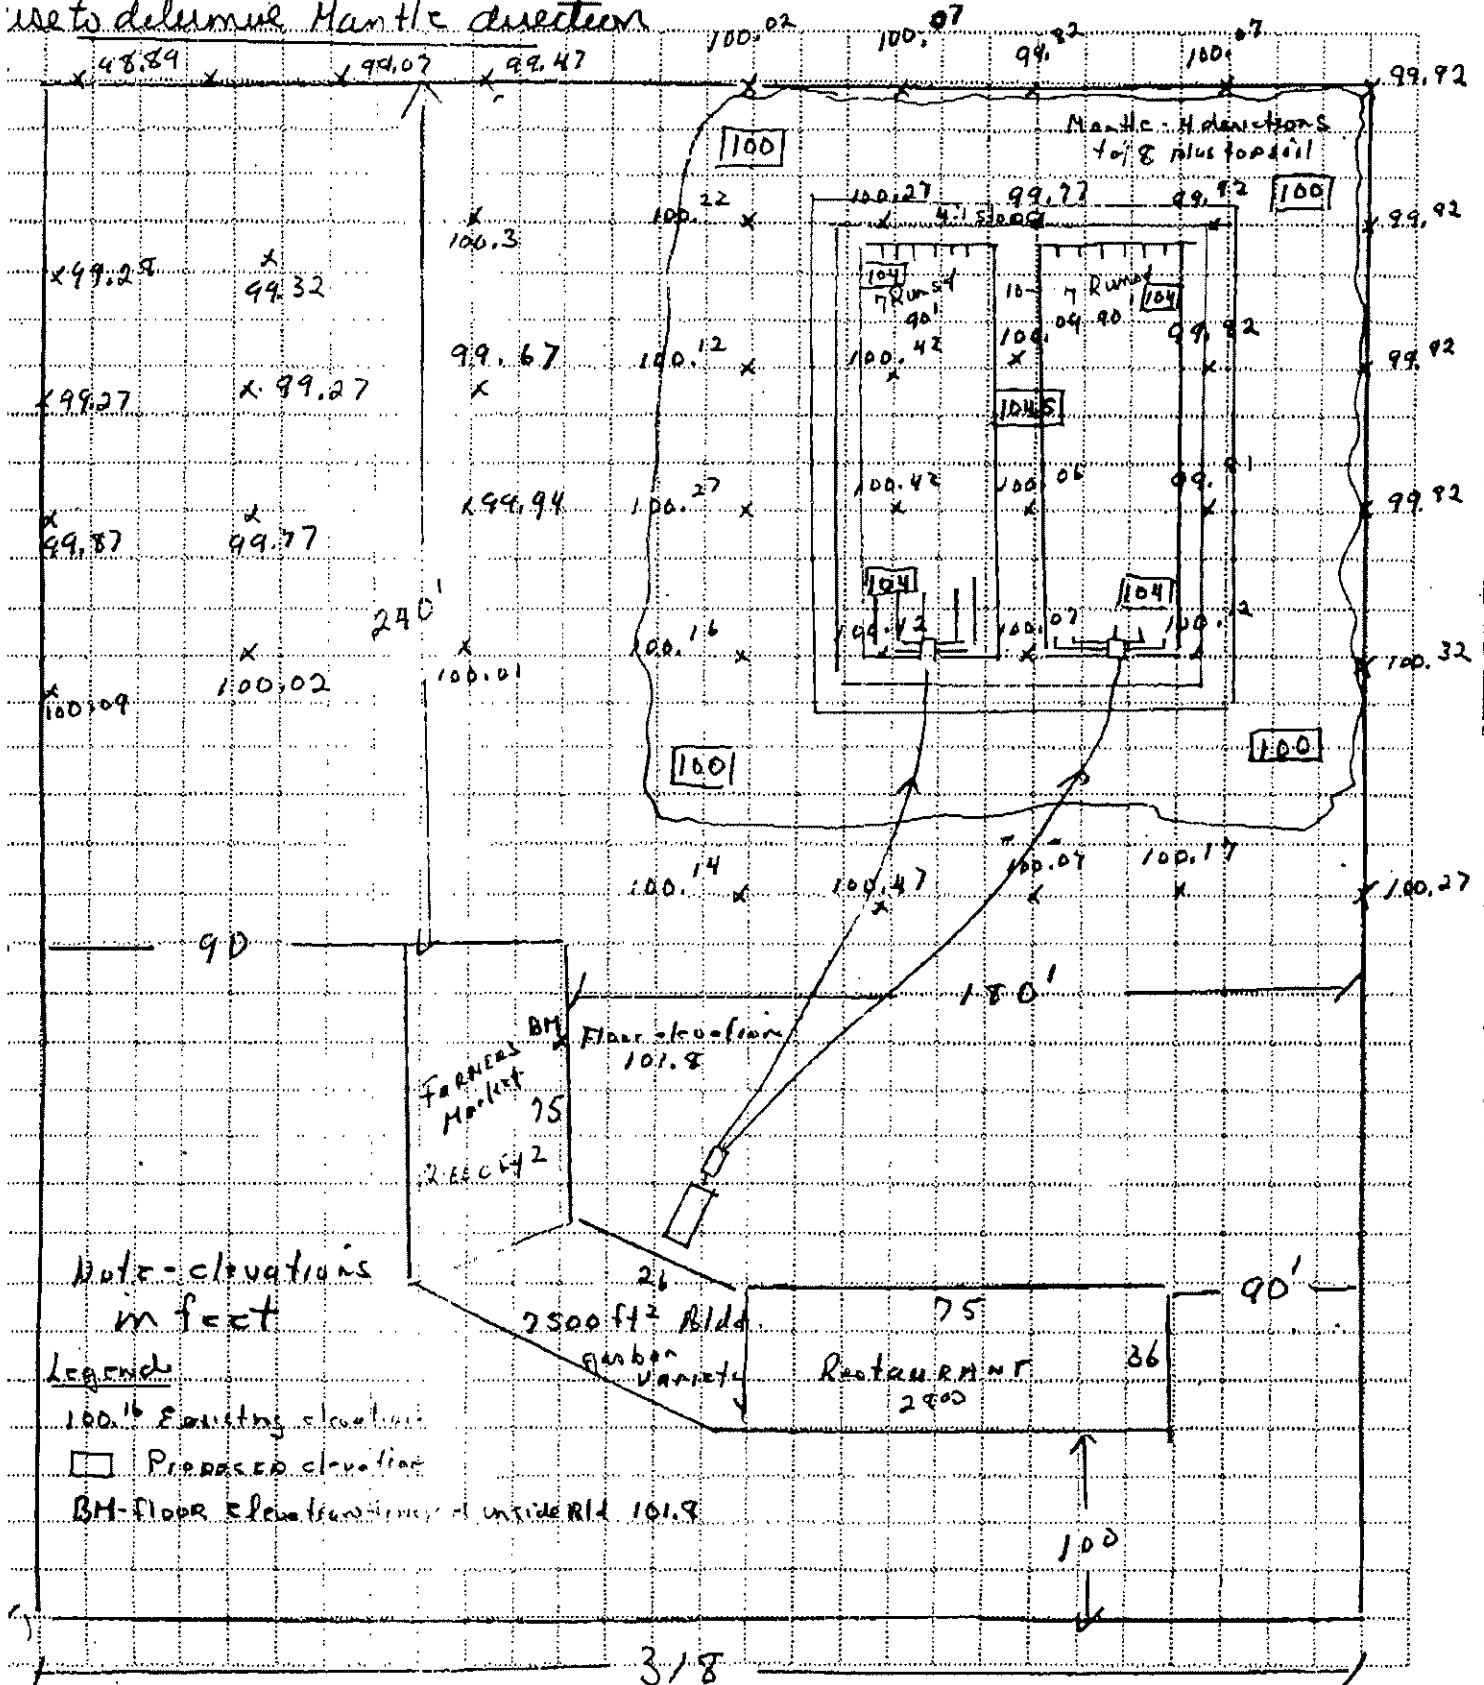 use to determine Mantle direction
98.89 99.07 99.47 100.02 100.07 99.82 100.07 99.92
Mantle - 4 directions
to/8 plus topsoil
100 100
100.22 100.27 99.77 99.92 99.92
4:1 slope
100.3
99.28 99.32
104 104
7 Runs of 90' 10- 7 Runs of 90
99.67 100.12 100.42 100. 99.82 99.92
99.27 99.27
104.5
99.94 100.27 100.42 100.06 99.81 99.82
99.87 99.77
104 104
240'
100.16 100.12 100.07 100.12 100.32
100.02 100.01
100.09
100 100
100.14 100.47 100.07 100.17 100.27
90
180'
BM Floor elevation
101.8
FARMERS
Market
75
26 90'
Note-elevations
in feet
7500 ft² Bldg. 75
variety RestauRANT 36
2800
Legend
100.16 Existing elevation
Proposed elevation
BM-floor elevation inside Bld 101.8
100
318